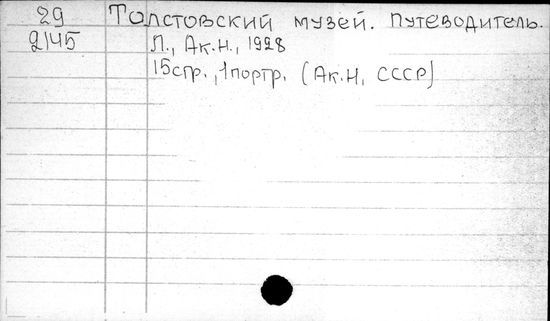 29 Толстовский музей. Путеводитель.
2145 Л., Ак.Н., 1928
15стр., 1портр. (Ак.Н. СССР)